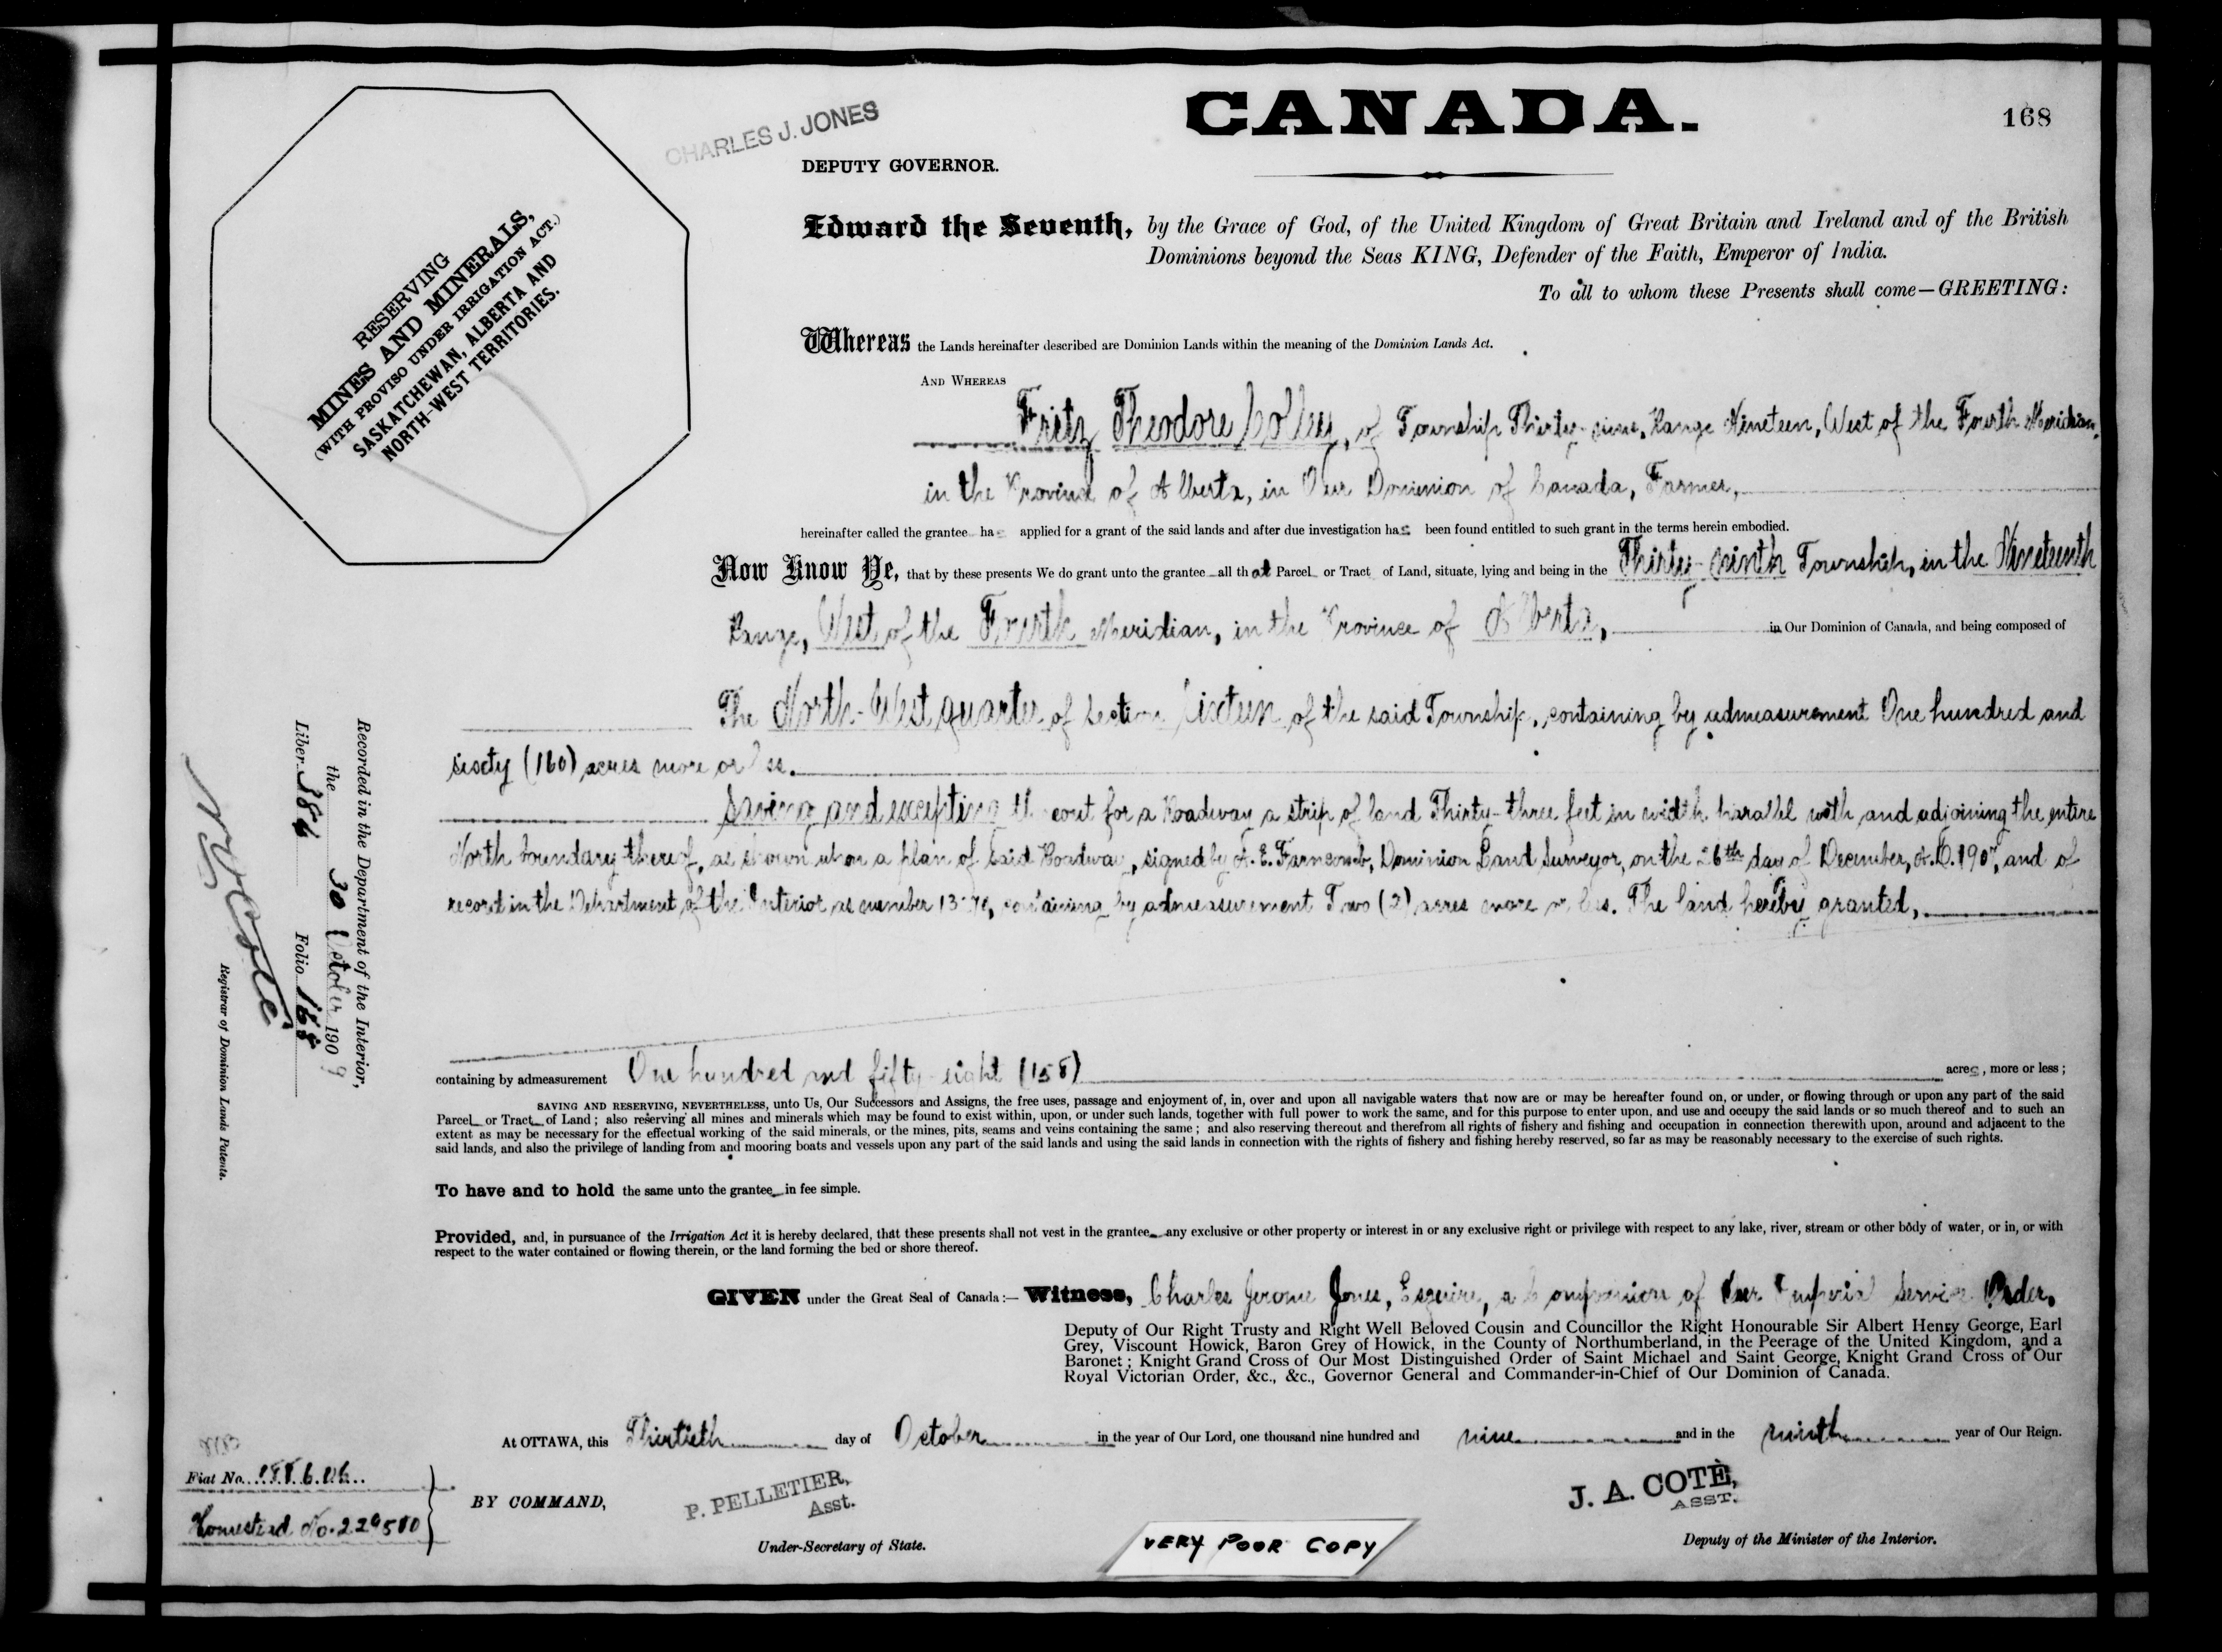 CANADA.
168
CHARLES J. JONES
DEPUTY GOVERNOR.
RESERVING
MINES AND MINERALS,
(WITH PROVISO UNDER IRRIGATION ACT.)
SASKATCHEWAN, ALBERTA AND
NORTH-WEST TERRITORIES.
Edward the Seventh, by the Grace of God, of the United Kingdom of Great Britain and Ireland and of the British
Dominions beyond the Seas KING, Defender of the Faith, Emperor of India.
To all to whom these Presents shall come—GREETING:
Whereas the Lands hereinafter described are Dominion Lands within the meaning of the Dominion Lands Act.
AND WHEREAS
Fritz Theodore of Township Thirty-nine, Range Nineteen, West of the Fourth Meridian,
in the Province of Alberta, in Our Dominion of Canada, Farmer,
hereinafter called the grantee has applied for a grant of the said lands and after due investigation has been found entitled to such grant in the terms herein embodied.
Now Know Ye, that by these presents We do grant unto the grantee all that Parcel or Tract of Land, situate, lying and being in the Thirty-ninth Township, in the Nineteenth
Range, West of the Fourth Meridian, in the Province of Alberta, in Our Dominion of Canada, and being composed of
The North-West quarter of Section Sixteen of the said Township, containing by admeasurement One hundred and
sixty (160) acres more or less.
Saving and excepting thereout for a Roadway a strip of land Thirty-three feet in width parallel with and adjoining the entire
North boundary thereof, as shown upon a plan of said Roadway, signed by A. E. Farncomb, Dominion Land Surveyor, on the 26th day of December, A.D. and of
record in the Department of the Interior as number containing by admeasurement Two (2) acres more or less. The land hereby granted,
containing by admeasurement One hundred and fifty-eight (158) acres, more or less;
SAVING AND RESERVING, NEVERTHELESS, unto Us, Our Successors and Assigns, the free uses, passage and enjoyment of, in, over and upon all navigable waters that now are or may be hereafter found on, or under, or flowing through or upon any part of the said
Parcel or Tract of Land; also reserving all mines and minerals which may be found to exist within, upon, or under such lands, together with full power to work the same, and for this purpose to enter upon, and use and occupy the said lands or so much thereof and to such an
extent as may be necessary for the effectual working of the said minerals, or the mines, pits, seams and veins containing the same; and also reserving thereout and therefrom all rights of fishery and fishing and occupation in connection therewith upon, around and adjacent to the
said lands, and also the privilege of landing from and mooring boats and vessels upon any part of the said lands and using the said lands in connection with the rights of fishery and fishing hereby reserved, so far as may be reasonably necessary to the exercise of such rights.
To have and to hold the same unto the grantee in fee simple.
Provided, and, in pursuance of the Irrigation Act it is hereby declared, that these presents shall not vest in the grantee any exclusive or other property or interest in or any exclusive right or privilege with respect to any lake, river, stream or other body of water, or in, or with
respect to the water contained or flowing therein, or the land forming the bed or shore thereof.
GIVEN under the Great Seal of Canada:— Witness, Charles Jerome Jones, Esquire, a Companion of Our Imperial Service Order,
Deputy of Our Right Trusty and Right Well Beloved Cousin and Councillor the Right Honourable Sir Albert Henry George, Earl
Grey, Viscount Howick, Baron Grey of Howick, in the County of Northumberland, in the Peerage of the United Kingdom, and a
Baronet; Knight Grand Cross of Our Most Distinguished Order of Saint Michael and Saint George, Knight Grand Cross of Our
Royal Victorian Order, &c., &c., Governor General and Commander-in-Chief of Our Dominion of Canada.
At OTTAWA, this Thirtieth day of October in the year of Our Lord, one thousand nine hundred and nine and in the ninth year of Our Reign.
BY COMMAND,
P. PELLETIER,
Asst.
Under-Secretary of State.
J. A. COTÈ,
ASST.
Deputy of the Minister of the Interior.
VERY POOR COPY
Fiat No.
Homestead No.
Recorded in the Department of the Interior,
the 30 October 1909
Liber 384 Folio 168
Registrar of Dominion Lands Patents.